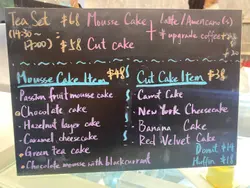 Tea Set $68 Mousse Cake
(14:30 - 17:00) $58 Cut cake
+ latte / Americano(s)
* upgrade coffee+$
Mousse Cake Item $48
Passion fruit mousse cake
• Chocolate cake
- Hazelnut layer cake
- Caramel cheesecake
• Green tea cake
• Chocolate mousse with blackcurrant
Cut Cake Item $38
- Carrot Cake
- New York Cheesecake
- Banana Cake
- Red Velvet Cake
Donut $14
Muffin $18